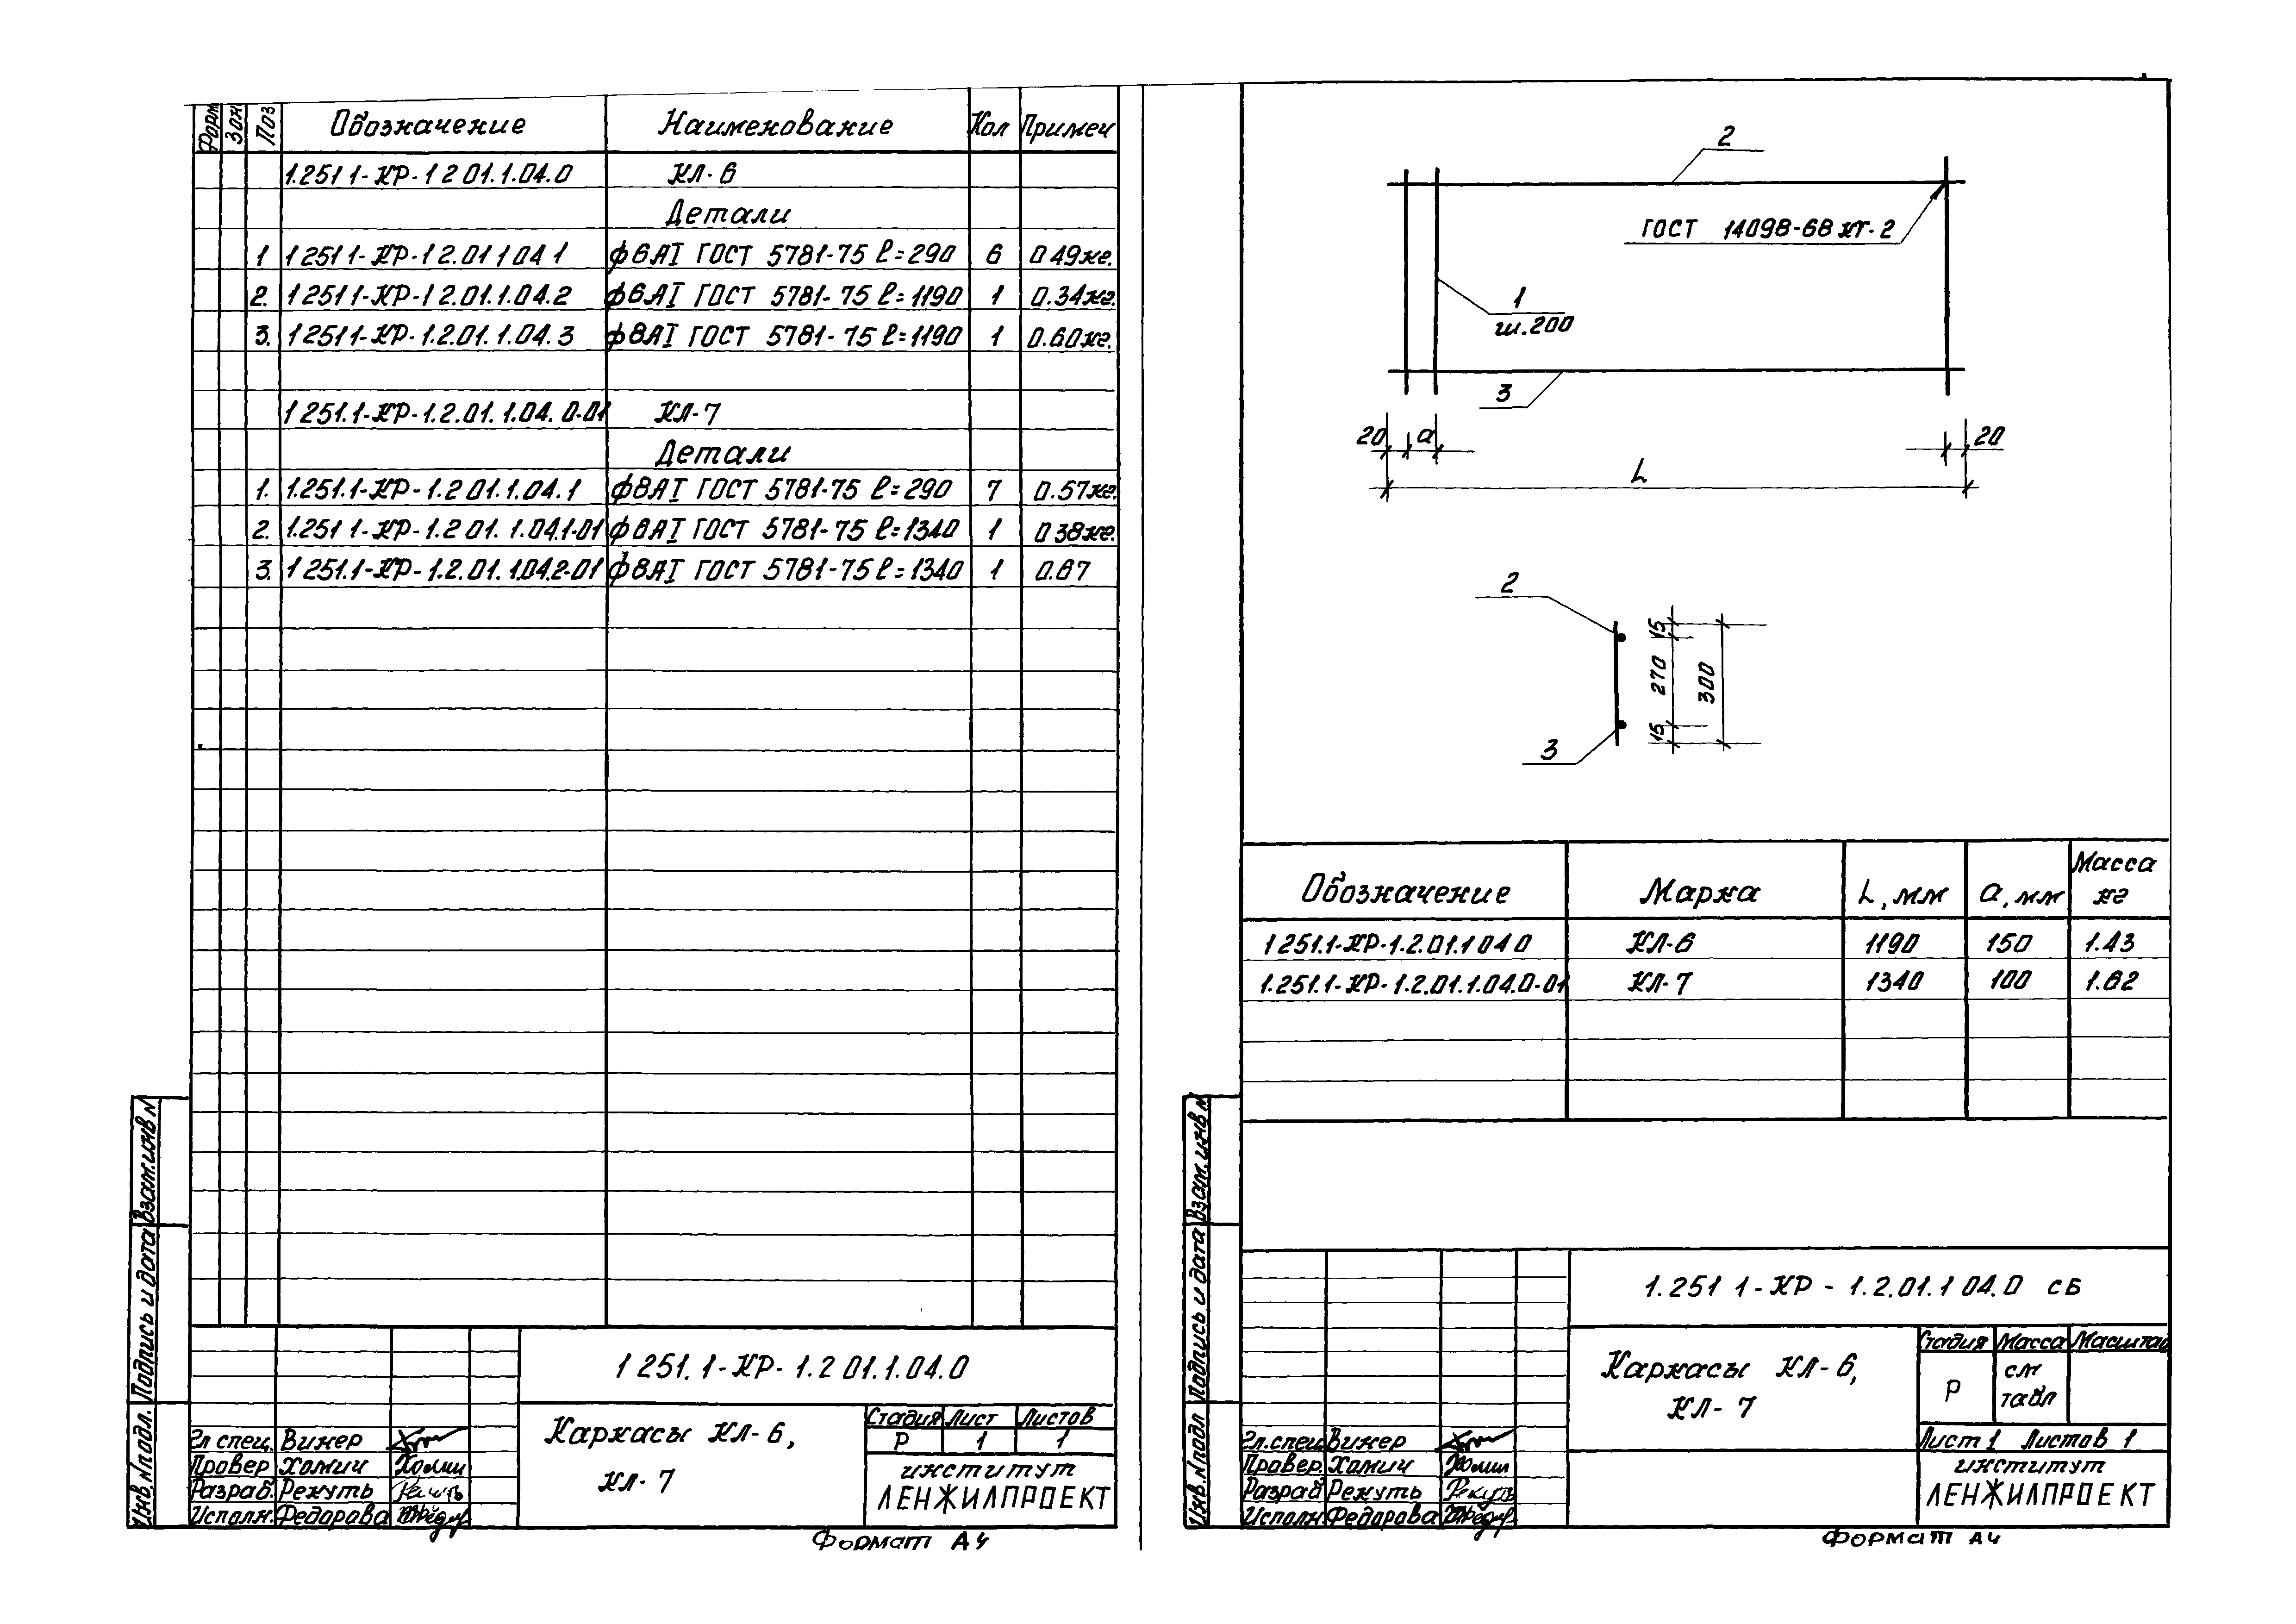 Форм Зон Поз Обозначение Наименование Кол Примеч
1.251 1-КР-1 2 01.1.04.0 КЛ-6
Детали
1 1 251 1-КР-1 2.01 1 04 1 ф6АI ГОСТ 5781-75 ℓ=290 6 0 49кг.
2. 1 251 1-КР-1 2.01.1.04.2 ф6АI ГОСТ 5781-75 ℓ=1190 1 0.34кг.
3. 1 251 1-КР-1.2.01.1.04.3 ф8АI ГОСТ 5781-75 ℓ=1190 1 0.60кг.
1 251.1-КР-1.2.01.1.04.0-01 КЛ-7
Детали
1. 1.251.1-КР-1.2 01.1.04.1 ф8АI ГОСТ 5781-75 ℓ=290 7 0.57кг.
2. 1.251 1-КР-1.2 01.1.04.1-01 ф6АI ГОСТ 5781-75 ℓ=1340 1 0 38кг.
3. 1 251.1-КР-1.2.01.1.04.2-01 ф8АI ГОСТ 5781-75 ℓ=1340 1 0.67
Взам.инв N
Подпись и дата
Инв.N подл.
1 251.1-КР-1.2 01.1.04.0
Гл спец. Винер
Провер Хамич
Разраб. Рекуть
Исполн. Федорова
Каркасы КЛ-6,
КЛ-7
Стадия Лист Листов
Р 1 1
институт
ЛЕНЖИЛПРОЕКТ
Формат А4
2
ГОСТ 14098-68 кт-2
1
ш.200
3
20 а 20
L
2
15
270
300
15
3
Обозначение Марка L, мм а, мм Масса кг
1 251.1-КР-1.2.01.1 04 0 КЛ-6 1190 150 1.43
1.251.1-КР-1.2.01.1.04.0-01 КЛ-7 1340 100 1.62
Взам.инв N
Подпись и дата
Инв.N подл
1.251 1-КР-1.2.01.1 04.0 СБ
Гл.спец Винер
Провер. Хамич
Разраб Рекуть
Исполн Федорова
Каркасы КЛ-6,
КЛ-7
Стадия Масса Масштаб
Р см табл
Лист 1 Листов 1
институт
ЛЕНЖИЛПРОЕКТ
Формат А4